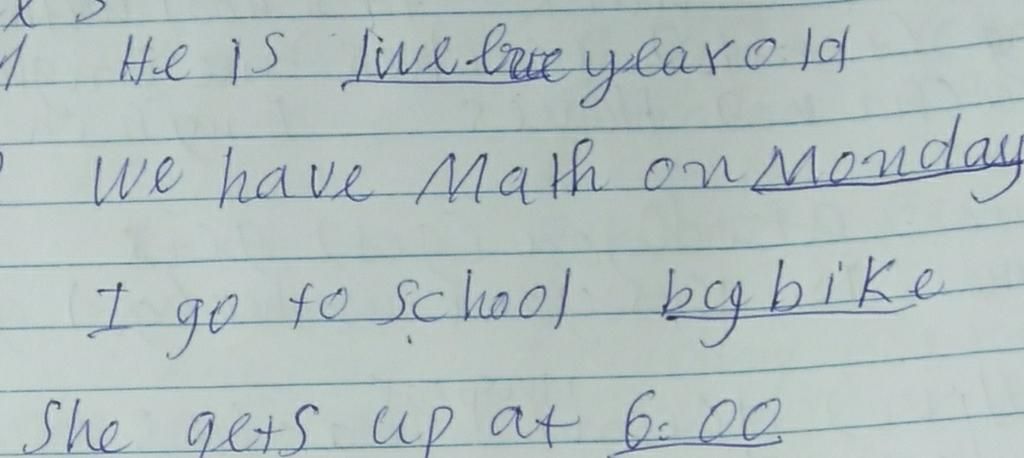 He is year old
We have Math on Monday
I go to school by bike
She gets up at 6:00